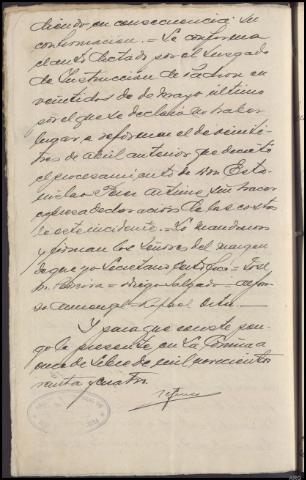 diendo, en consecuencia: Su
confirmacion. = Se confirma
el auto dictado por el Juzgado
de Instrucción de Padron en
veintidos de de mayo último
por el que se declaró no haber
lugar a reformar el de veinti-
tres de abril anterior que decretó
el procesamiento de Don Esta-
nislao Perez Artime sin hacer
expresa declaracion de las costas
de este incidente. = Lo mandaron
y firman los Señores del margen
de que yo Secretario certifico = José
M. Pereira = Diego Salgado = Alfon-
so Armengol = Rafael
Y para que conste pon-
go la presente en La Coruña a
once de Julio de mil novecientos
treinta y cuatro.